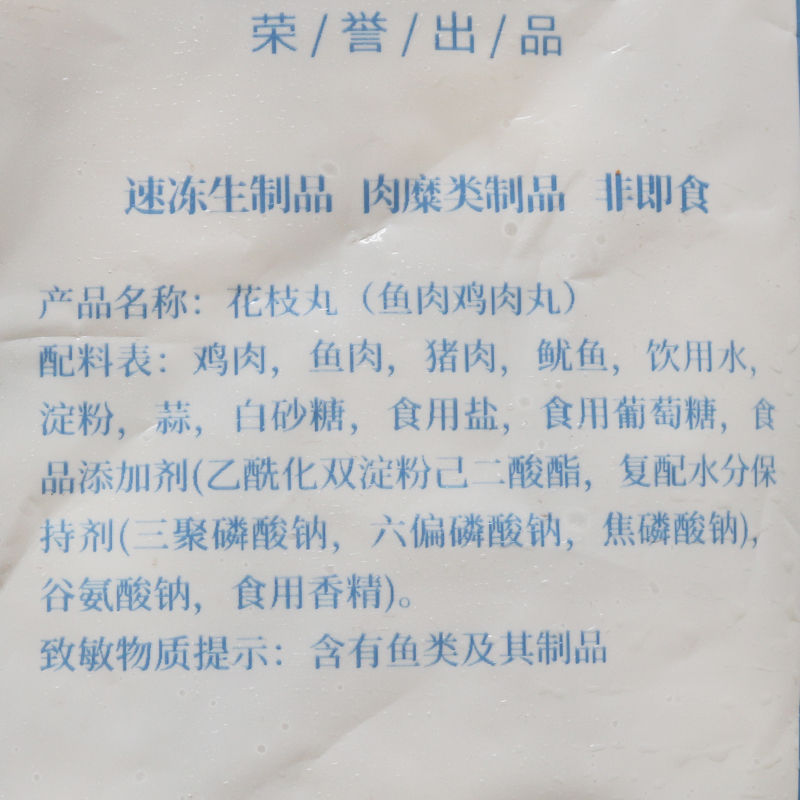 荣/誉/出/品
速冻生制品 肉糜类制品 非即食
产品名称：花枝丸（鱼肉鸡肉丸）
配料表：鸡肉，鱼肉，猪肉，鱿鱼，饮用水，
淀粉，蒜，白砂糖，食用盐，食用葡萄糖，食
品添加剂(乙酰化双淀粉己二酸酯，复配水分保
持剂(三聚磷酸钠，六偏磷酸钠，焦磷酸钠)，
谷氨酸钠，食用香精)。
致敏物质提示：含有鱼类及其制品